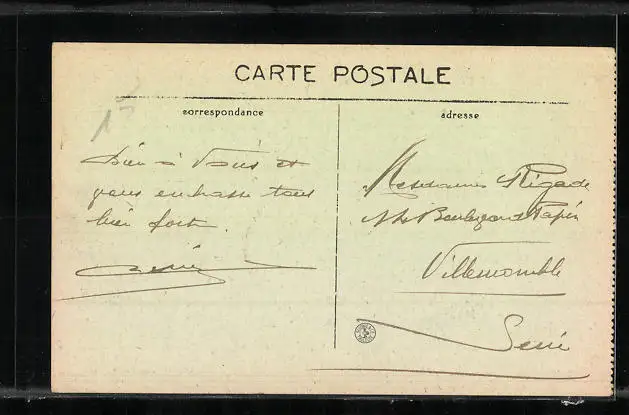 CARTE POSTALE
correspondance
adresse
15
Bien à Vous et
vous embrasse tous
bien fort.
Mesdames Rigade
Boulevard Papin
Villemomble
Seine